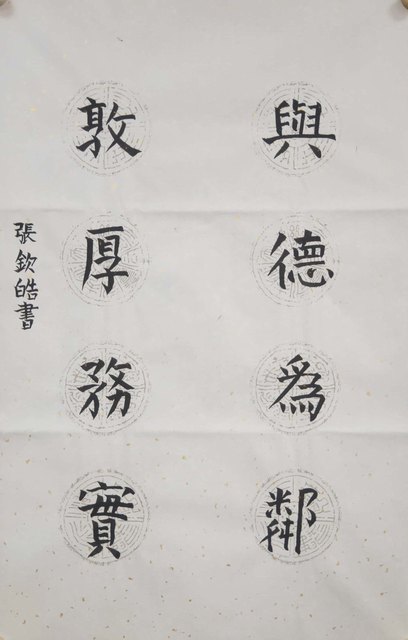 與德為鄰
敦厚務實
張欽皓書